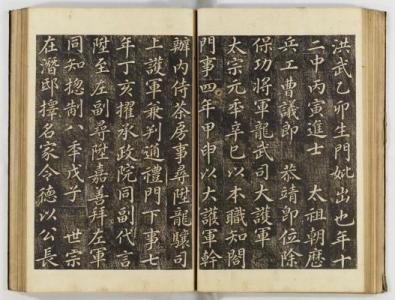 洪武乙卯生門地出也年十
二中丙寅進士 太祖朝歷
兵工曹議郎 恭靖即位除
保功將軍龍武司大護軍
太宗元秊辛巳以本職知閤
門事四年甲申以大護軍幹
辦內侍茶房事尋陞龍驤司
上護軍兼判通禮門下事七
年丁亥擢承政院同副代言
陞至左副尋陞嘉善拜左軍
同知摠制八秊戊子 世宗
在潛邸擇名家令德以公長